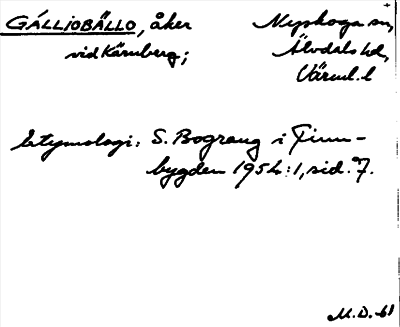 GÁLLIOBÄLLO, åker
vid Kärnberg;
Nyskoga sn,
Älvdals hd,
Värml. l
Etymologi: S. Bograng i Finn-
bygden 1954:1, sid. 7.
M.D. -61